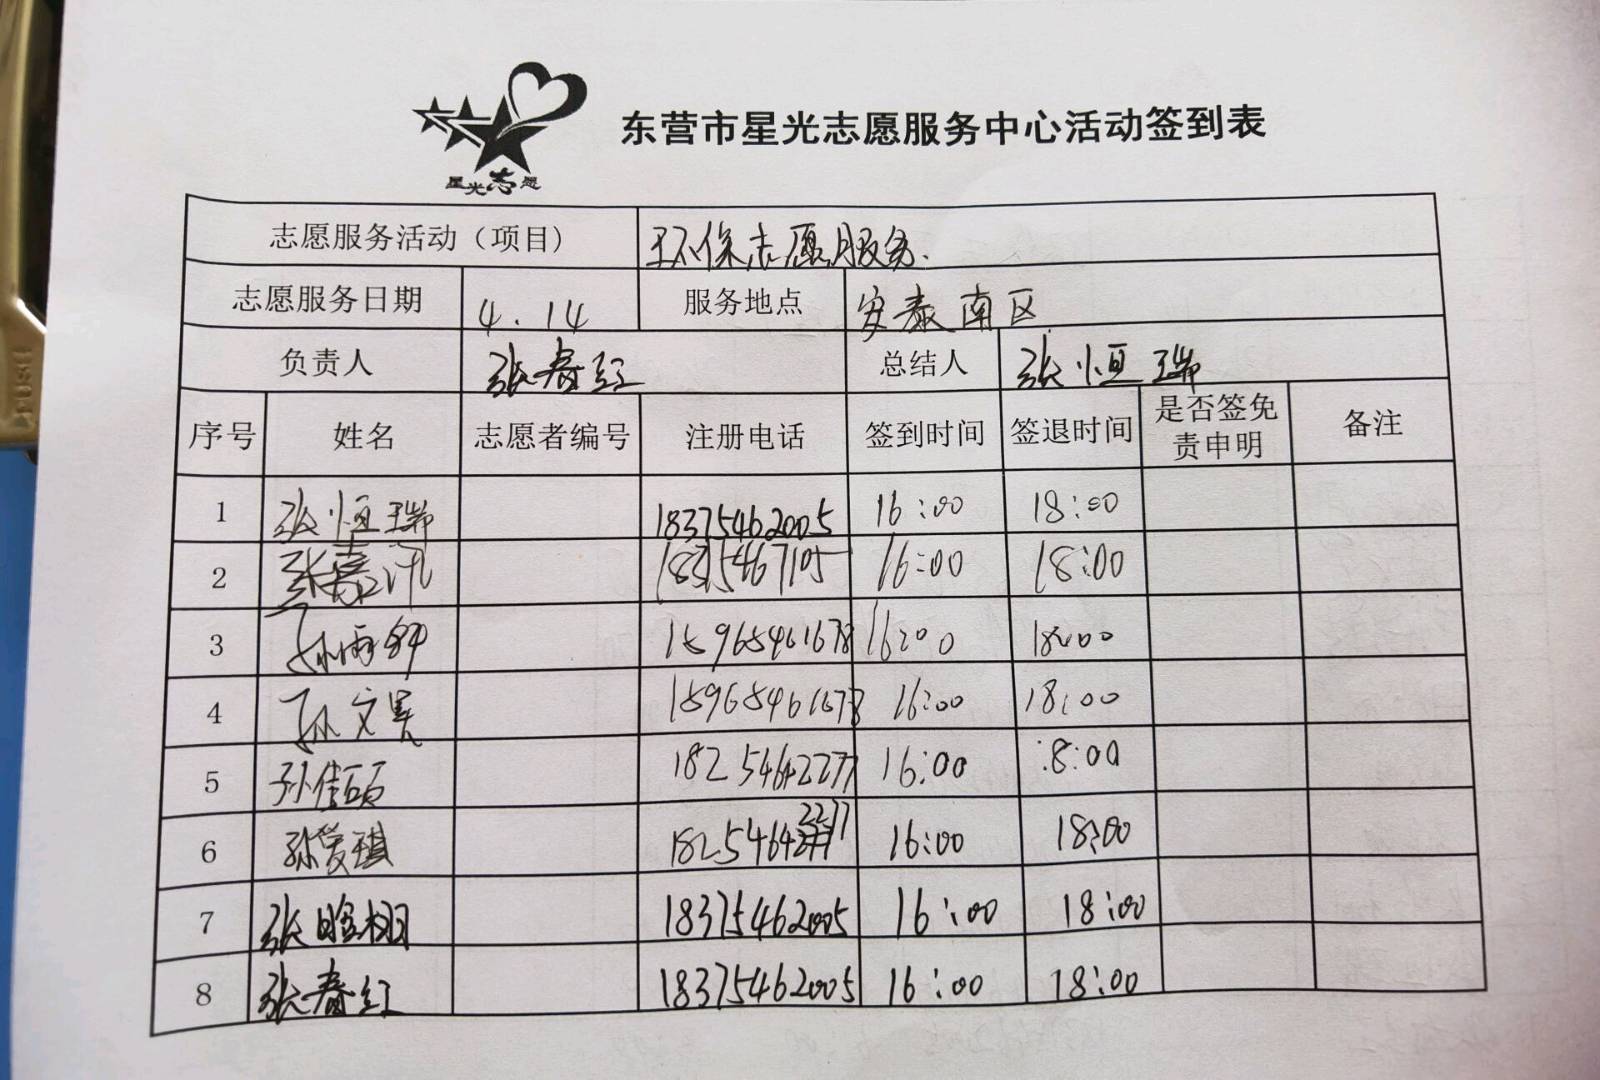 星光志愿
东营市星光志愿服务中心活动签到表
志愿服务活动（项目） 环保志愿服务.
志愿服务日期 4.14 服务地点 安泰南区
负责人 张春红 总结人 张恒瑞
序号 姓名 志愿者编号 注册电话 签到时间 签退时间 是否签免责申明 备注
1 张恒瑞 18375462005 16:00 18:00
2 张嘉汛 18315467105 16:00 18:00
3 孙雨舒 15965461678 16:00 18:00
4 孙文昊 15965461678 16:00 18:00
5 孙佳硕 18254642277 16:00 18:00
6 孙爱琪 18254642277 16:00 18:00
7 张晗栩 18375462005 16:00 18:00
8 张春红 18375462005 16:00 18:00
PUSH